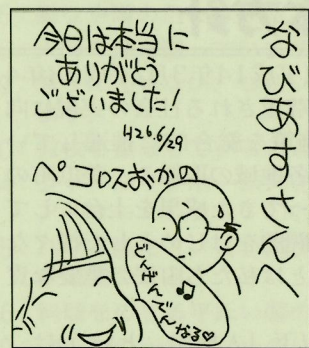 なびあすさんへ
今日は本当に
ありがとう
ございました!
H26.6/29
ペコロスおかの
どんぞんどん
なる♡